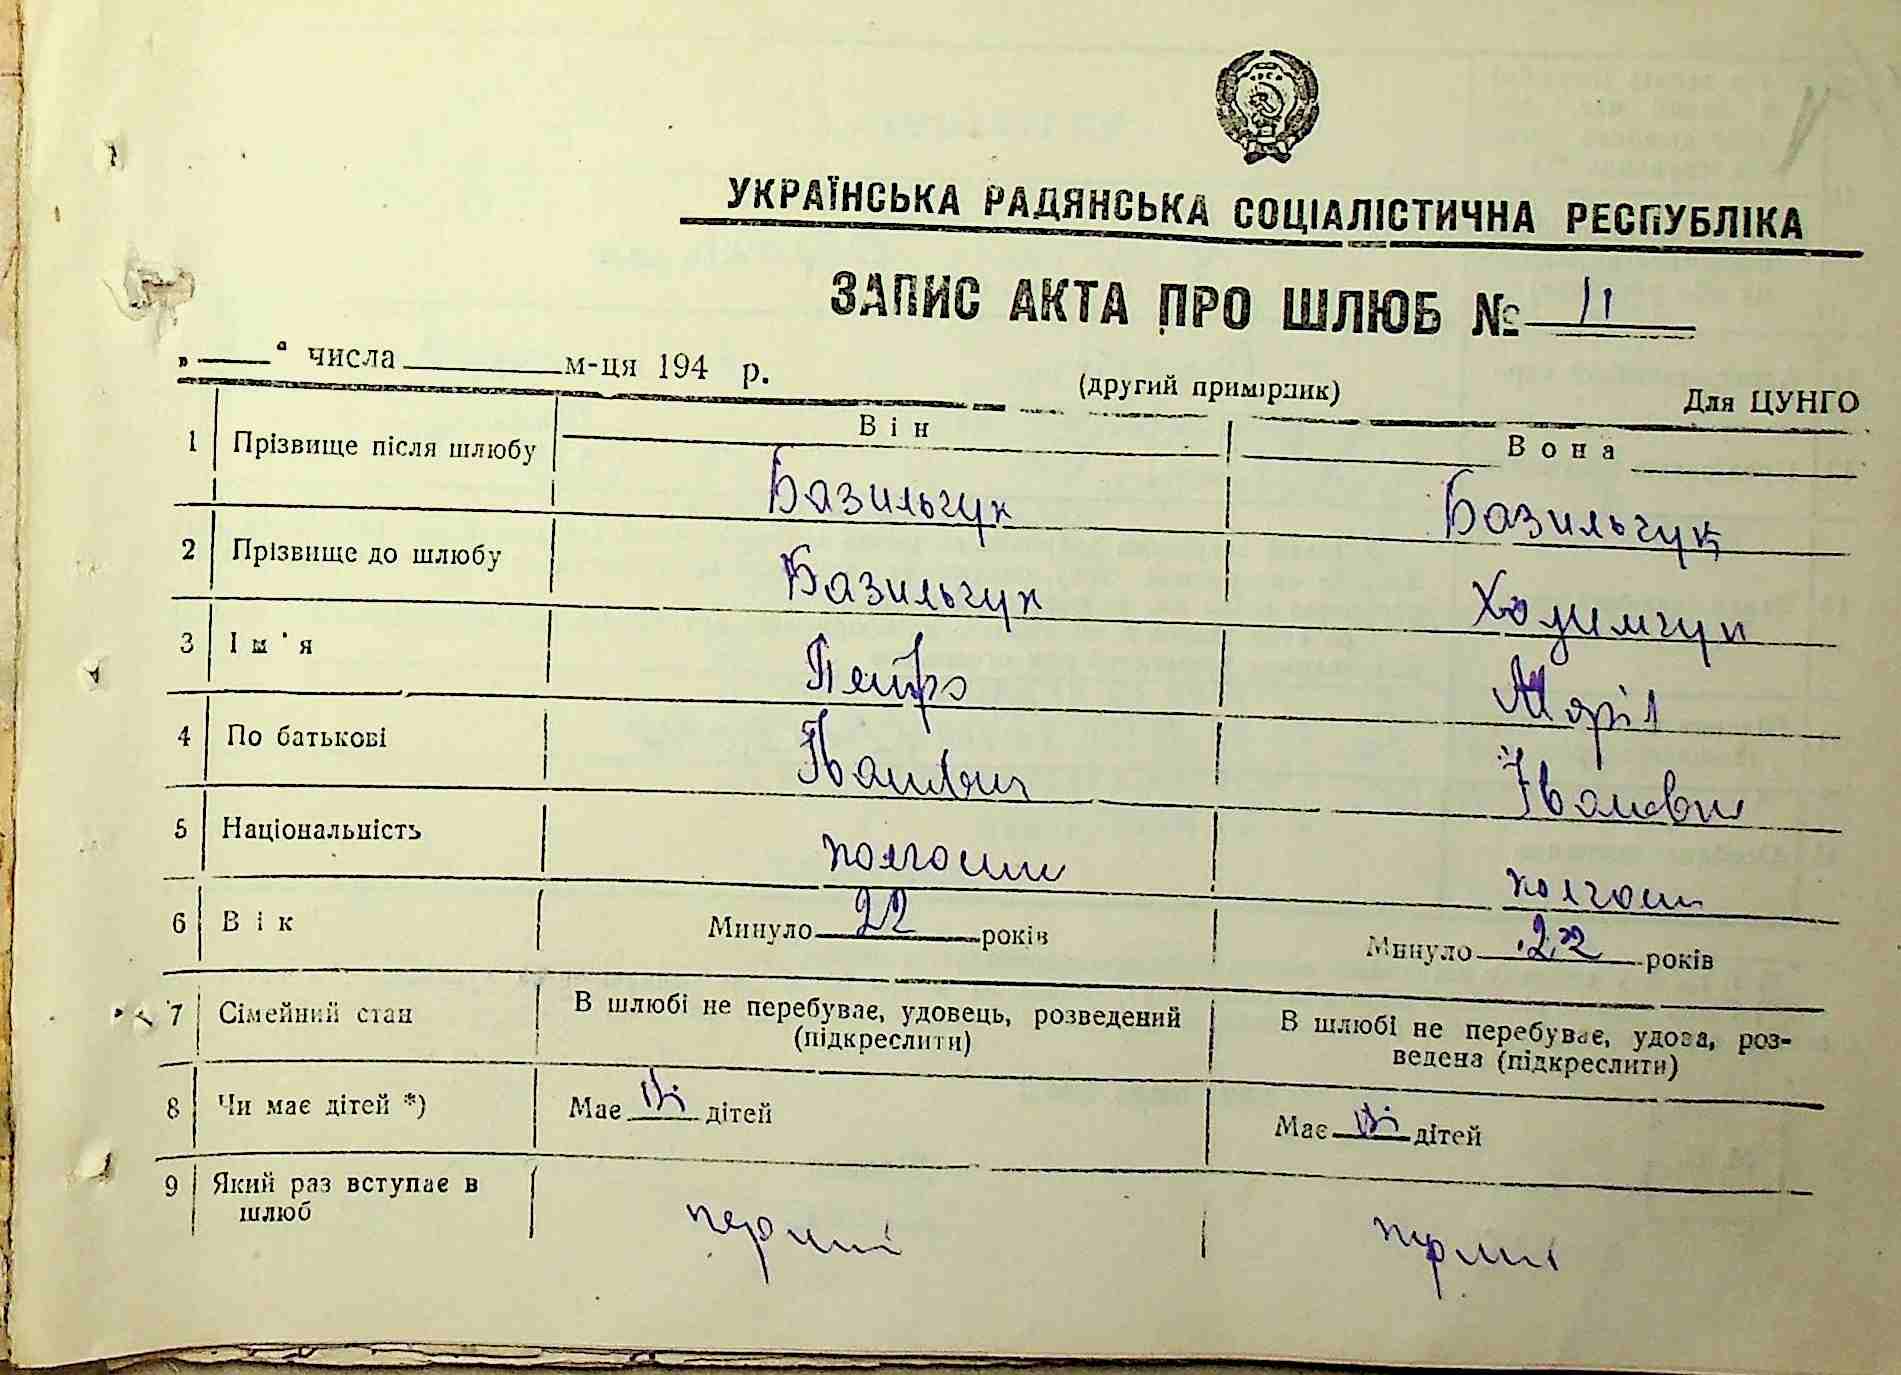 УКРАЇНСЬКА РАДЯНСЬКА СОЦІАЛІСТИЧНА РЕСПУБЛІКА
ЗАПИС АКТА ПРО ШЛЮБ № 11
„ “ числа м-ця 194 р.
(другий примірник)
Для ЦУНГО
Він Вона
1 Прізвище після шлюбу Базильчук Базильчук
2 Прізвище до шлюбу Базильчук
3 Ім'я Петро Марія
4 По батькові Іванович Іванівна
5 Національність
6 Вік Минуло 22 років Минуло 22 років
7 Сімейний стан В шлюбі не перебуває, удовець, розведений В шлюбі не перебуває, удова, роз-
(підкреслити) ведена (підкреслити)
8 Чи має дітей *) Має дітей Має дітей
9 Який раз вступає в
шлюб перший перший